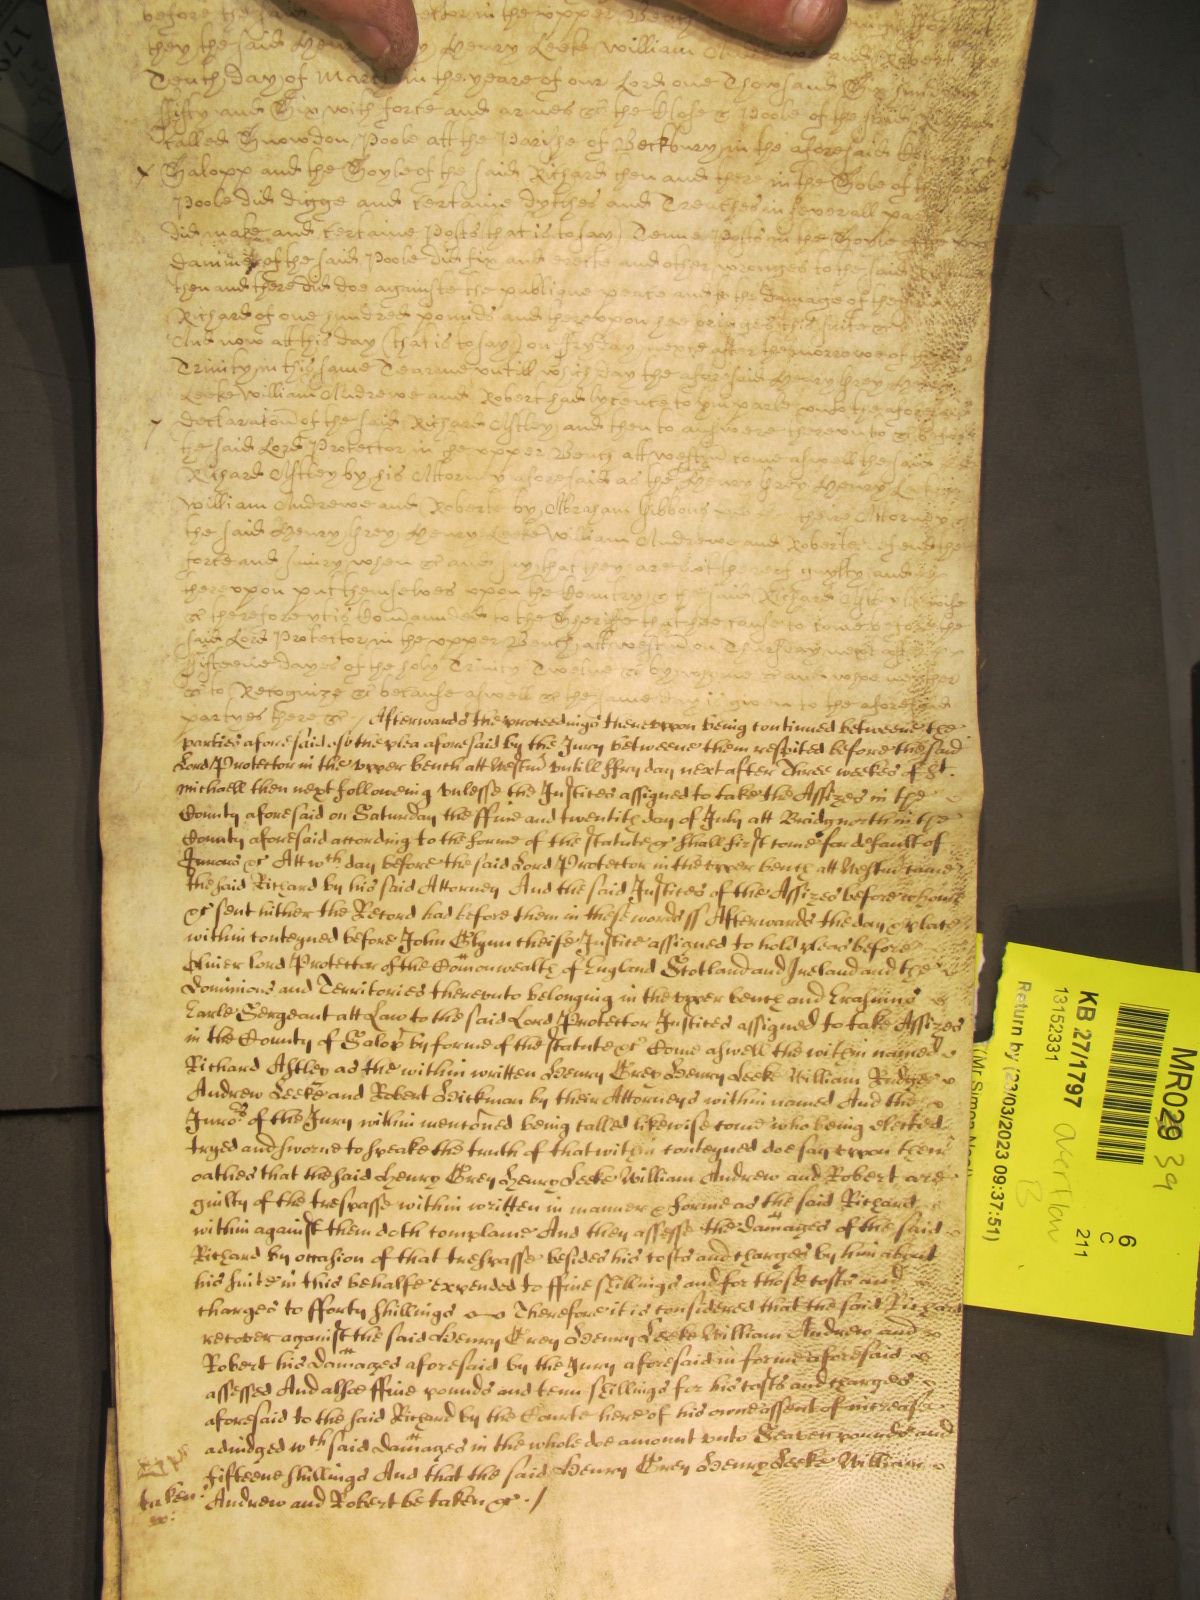 before the said in the upper Bench
they the said Henry Henry Leeke William and Robert the
Tenth day of March in the yeare of our Lord one Thousand Six hundred
ffifty and Six with force and armes &c the Close & Poole of the said Richard
called Snowdon Poole att the Parishe of Beckbury in the aforesaid County of
Salopp and the Soyle of the said Richard then and there in the Sole of the said
Poole did digge and certaine dytches and Trenches in severall
did make and certaine Posts that is to say Tenne Posts in the Soyle of the
damme of the said Poole did fix and erecte and other wronges to the said Richard
then and there did doe againste the publique peace and to the damage of the said
Richard of one hundred pounds and thereupon hee bringes this suite &c
And now att this day (that is to say) on ffryday next after the morrowe of the
Trinity in this same Tearme untill which day the aforesaid Henry Grey Henry
Leeke William Andrewe and Robert had lycence to imparle unto the aforesaid
declaratōn of the said Richard Astley and then to answere thereunto &c before
the said Lord Protector in the upper Bench att Westm̄ come aswell the said
Richard Astley by his Attorny aforesaid as the Henry Grey Henry Leeke
William Andrewe and Roberte by Abraham Gibbons theire Attorney
the said Henry Grey Henry Leeke William Andrewe and Roberte defend the
force and iniury when &c and say that they are not thereof guylty and
thereupon put themselves upon the Country & the said Richard Astley likewise
&c therefore ytis Com̄aunded to the Sheriffe that hee cause to come before the
said Lord Protector in the upper Bench att westm̄ on Thursday next after
ffifteene dayes of the holy Trinity Twelve &c by whome &c and whoe neyther
&c to Recognize &c because aswell &c the same day is given to the aforesaid
partyes here &c / Afterwards the proceedings thereuppon being continued betweene the
parties aforesaid of the plea aforesaid by the Jury betweene them respited before the said
Lord Protector in the upper bench att Westm̄ untill ffryday next after Three weekes of St.
michaell then next following unlesse the Justices assigned to take the Assizes in the
County aforesaid on Saturday the ffive and twentith day of July att Bridgnorth in the
County aforesaid according to the forme of the statute &c shall first come for default of
Jurors &c Att wᶜʰ day before the said Lord Protector in the upper bench att Westm̄ came
the said Richard by his said Attorney And the said Justices of the Assizes before whome
&c sent hither the Record had before them in these words ss Afterwards the day & place
within conteyned before John Glynn cheife Justice assigned to hold pleas before
Oliver lord Protector of the Com̄onwealth of England Scotland and Ireland and the
Dominions and Territories thereunto belonging in the upper bench and Erasmus
Earle Sergeant att Law to the said Lord Protector Justices assigned to take Assizes
in the County of Salop by forme of the statute &c Come aswell the within named
Richard Astley as the within written Henry Grey Henry Leeke William
Andrew Leeke and Robert Hickman by their Attorneys within named And the
Jurors of the Jury within mentōned being called likewise come who being elected
tryed and sworne to speake the truth of that within conteyned doe say uppon their
oathes that the said Henry Grey Henry Leeke William Andrew and Robert are
guilty of the trespasse within written in manner & forme as the said Richard
within against them doth complaine And they assesse the dam̄ages of the said
Richard by occasion of that trespasse besides his costs and charges by him about
his suite in this behalfe expended to ffive shillings and for those costs and
charges to fforty shillings Therefore it is considered that the said Richard
recover against the said Henry Grey Henry Leeke William Andrew and
Robert his dam̄ages aforesaid by the Jury aforesaid in forme aforesaid
assessed And alsoe ffive pounds and tenn shillings for his costs and charges
aforesaid to the said Richard by the Courte here of his owne assent of increase
adiudged wᶜʰ said dam̄ages in the whole doe amount unto Seaven pounds and
fifteene shillings And that the said Henry Grey Henry Leeke William
taken: Andrew and Robert be taken &c. /
MR029 39
6
C
211
KB 27/1797
13152331
Return by (23/03/2023 09:37:51)